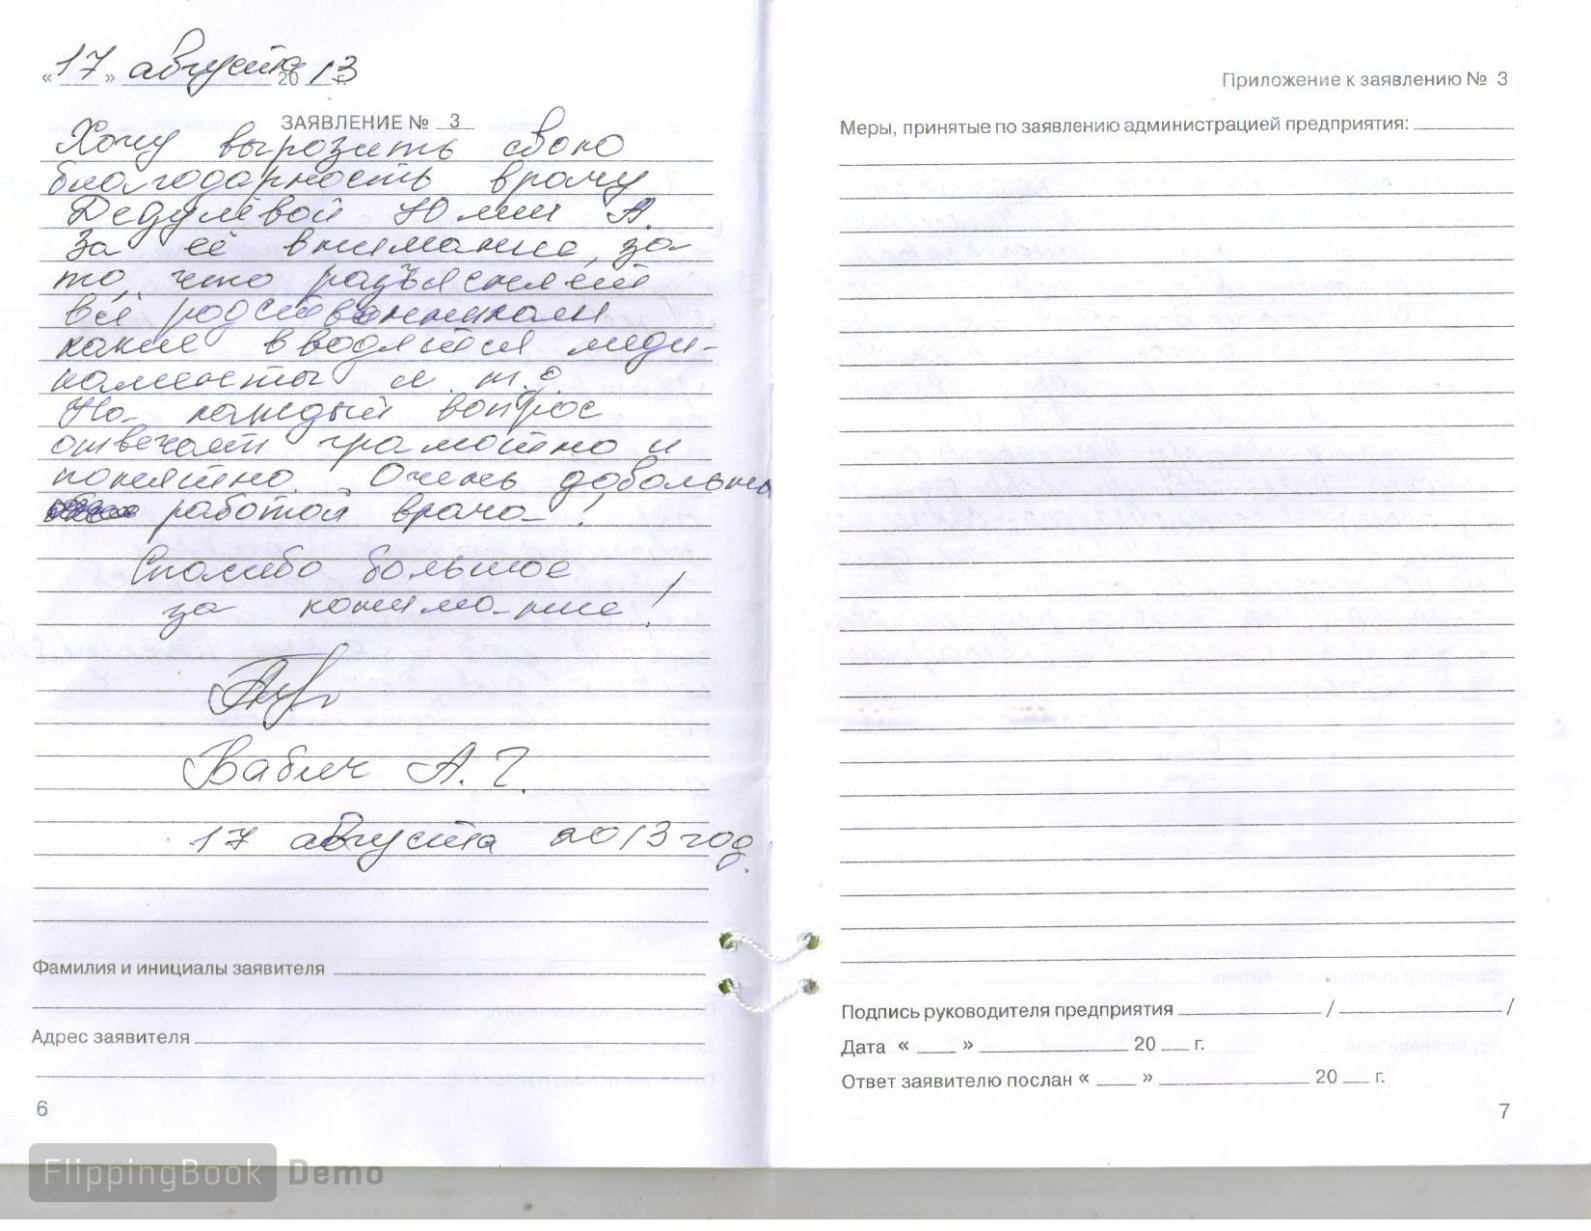 «17» августа 20 13
ЗАЯВЛЕНИЕ № 3
Хочу вырозить свою
благодарность врачу
Дедулевой Юлии А.
За её внимание, за
то, что разъясняет
всё родственникам
какие вводятся меди-
каменты и т.д.
На каждый вопрос
отвечает грамотно и
понятно. Очень довольна
работой врача!
Спасибо большое
за понимание!
Бабич А. Г.
17 августа 2013 год.
Фамилия и инициалы заявителя
Адрес заявителя
6
Приложение к заявлению № 3
Меры, принятые по заявлению администрацией предприятия:
Подпись руководителя предприятия / /
Дата « » 20 г.
Ответ заявителю послан « » 20 г.
7
FlippingBook Demo